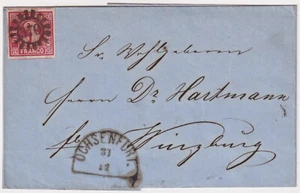 FRANCO
Sr. Wohlgeboren
Herrn Dr. Hartmann
Würzburg
OCHSENFURT.
31
12